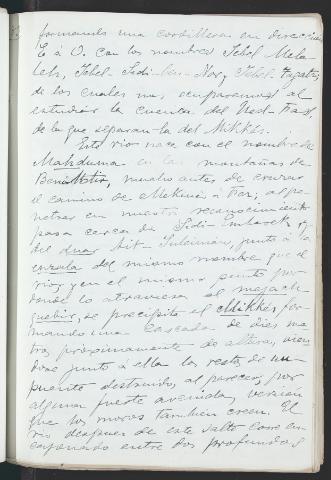 formando una cordillera en dirección
E. á O. con los nombres Jebel Mela-
, Jebel-Sidi-ben-Nor y Jebel-Tagattu,
de los cuales nos ocuparemos al
estudiar la cuenca del Ued-Fas,
de la que separan la del Mikkés.
Este rio nace con el nombre de
Mahduma en las montañas de
, mucho antes de cruzar
el camino de Mekines á Fez; al pe-
netrar en nuestro reconocimiento
pasa cerca de Sidi-Embarek y
del duar Ait-Suleiman, junto á la
del mismo nombre que el
rio, y en el mismo punto por
donde lo atraviesa el mejach
quebir, se precipita el Mikkés for-
mando una cascada de diez me-
tros proximamente de altura, vien-
dose junto á ella los restos de un
puente destruido, al parecer, por
alguna fuerte avenida, versión
que los moros tambien creen. El
rio despues de este salto corre en-
cajonado entre dos profundas